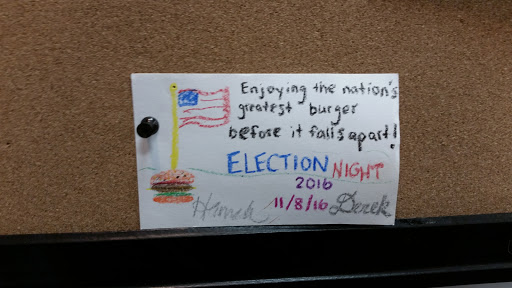 Enjoying the nation's
greatest burger
before it falls apart!
ELECTION NIGHT
2016
11/8/16 Derek